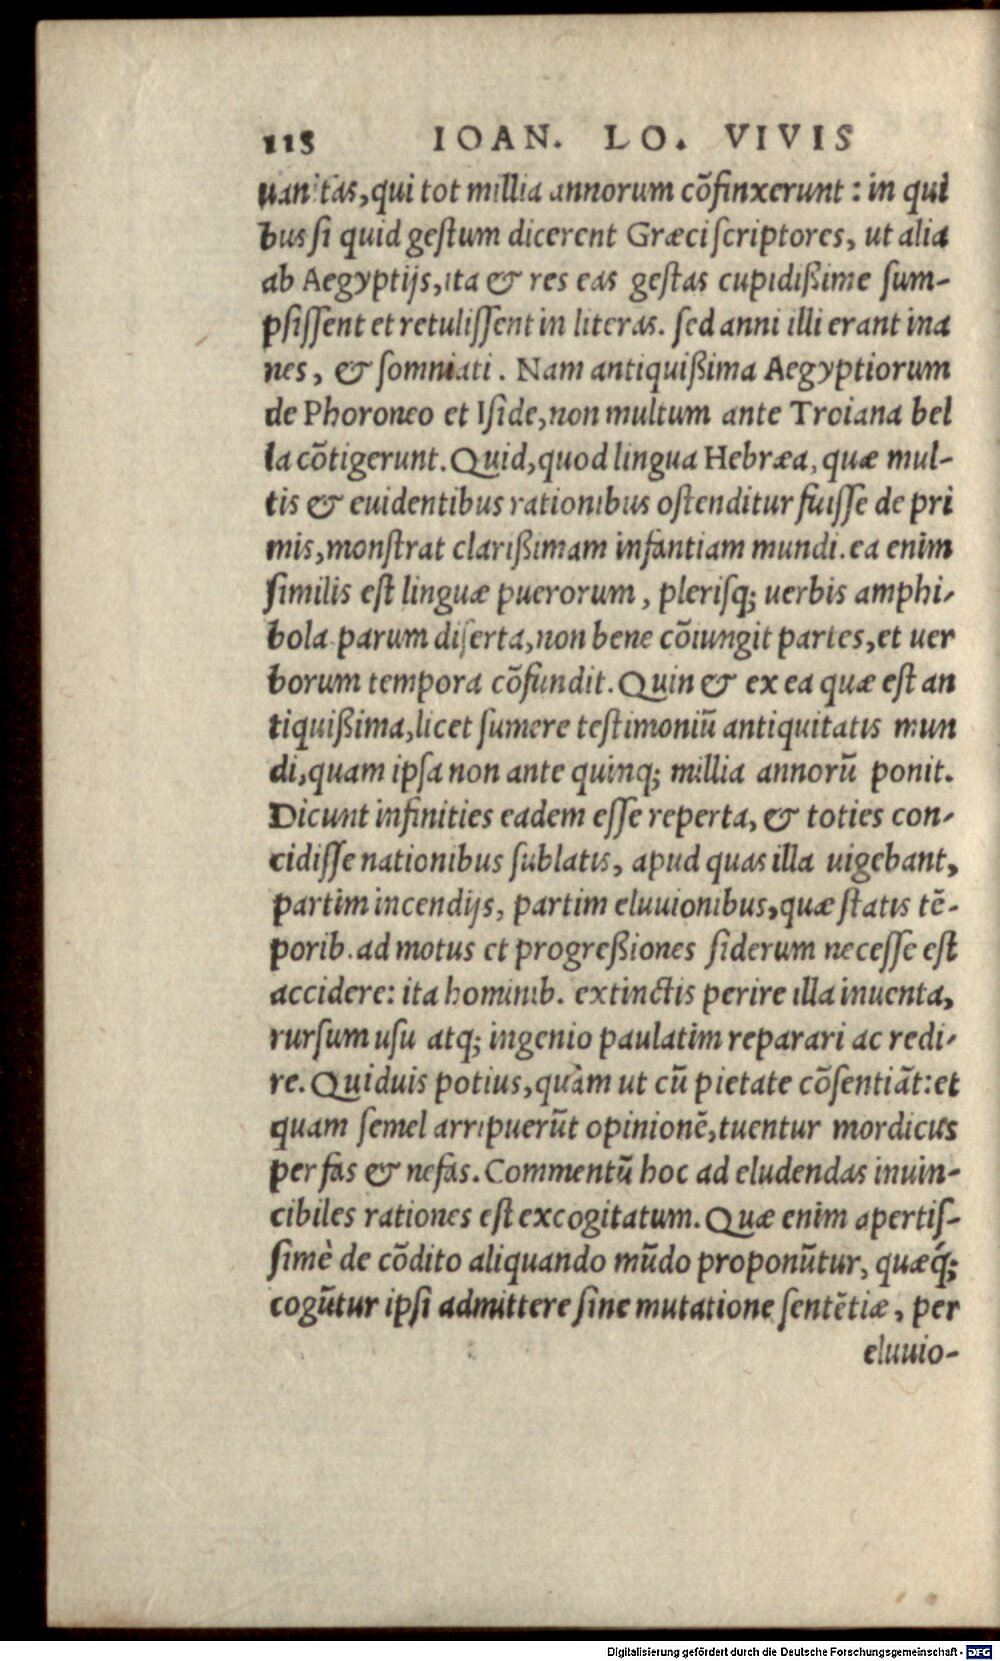 118 IOAN. LO. VIVIS
uanitas, qui tot millia annorum cõfinxerunt: in qui
bus si quid gestum dicerent Græci scriptores, ut alia
ab Aegyptijs, ita & res eas gestas cupidißime sum-
psissent et retulissent in literas. sed anni illi erant ina
nes, & somniati. Nam antiquißima Aegyptiorum
de Phoroneo et Iside, non multum ante Troiana bel
la cõtigerunt. Quid, quod lingua Hebræa, quæ mul-
tis & euidentibus rationibus ostenditur fuisse de pri
mis, monstrat clarißimam infantiam mundi. ea enim
similis est linguæ puerorum, plerisq; uerbis amphi-
bola parum diserta, non bene cõiungit partes, et uer
borum tempora cõfundit. Quin & ex ea quæ est an
tiquißima, licet sumere testimoniũ antiquitatis mun
di, quam ipsa non ante quinq; millia annorũ ponit.
Dicunt infinities eadem esse reperta, & toties con-
cidisse nationibus sublatis, apud quas illa uigebant,
partim incendijs, partim eluuionibus, quæ statis tẽ-
porib. ad motus et progreßiones siderum necesse est
accidere: ita hominib. extinctis perire illa inuenta,
rursum usu atq; ingenio paulatim reparari ac redi-
re. Quiduis potius, quàm ut cũ pietate cõsentiãt: et
quam semel arripuerũt opinionẽ, tuentur mordicus
per fas & nefas. Commentũ hoc ad eludendas inuin-
cibiles rationes est excogitatum. Quæ enim apertis-
simè de cõdito aliquando mũdo proponũtur, quæq́;
cogũtur ipsi admittere sine mutatione sentẽtiæ, per
eluuio-
Digitalisierung gefördert durch die Deutsche Forschungsgemeinschaft - DFG